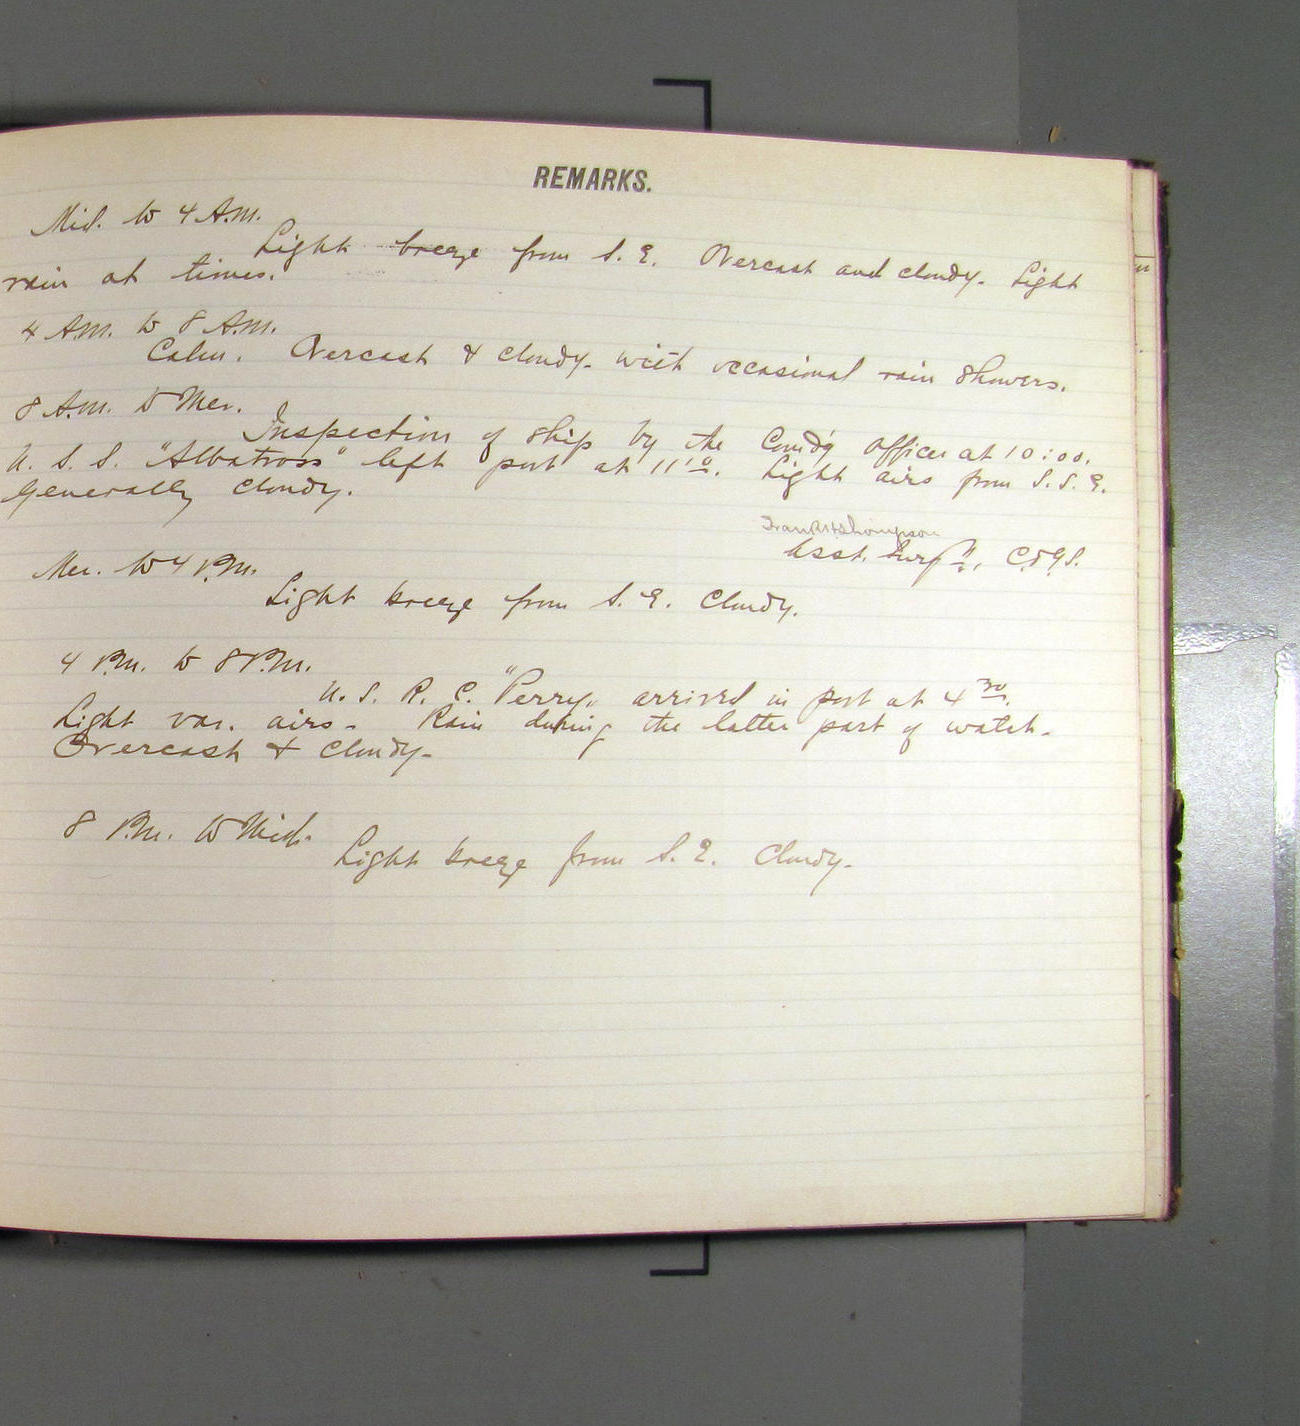 REMARKS.
Mid. to 4 A.M.
Light breeze from S. E. Overcast and cloudy. Light
rain at times.
4 A.M. to 8 A.M.
Calm. Overcast & cloudy with occasional rain showers.
8 A.M. to Mer.
Inspection of ship by the Comd'g Officer at 10:00.
U. S. S. "Albatross" left port at 11:10. Light airs from S. S. E.
Generally cloudy.
Thompson
Asst. Surg'n, C.&G.S.
Mer. to 4 P.M.
Light breeze from S. E. Cloudy.
4 P.M. to 8 P.M.
U. S. R. C. "Perry" arrived in port at 4 30.
Light var. airs. Rain during the latter part of watch.
Overcast & cloudy.
8 P.M. to Mid.
Light breeze from S. E. Cloudy.